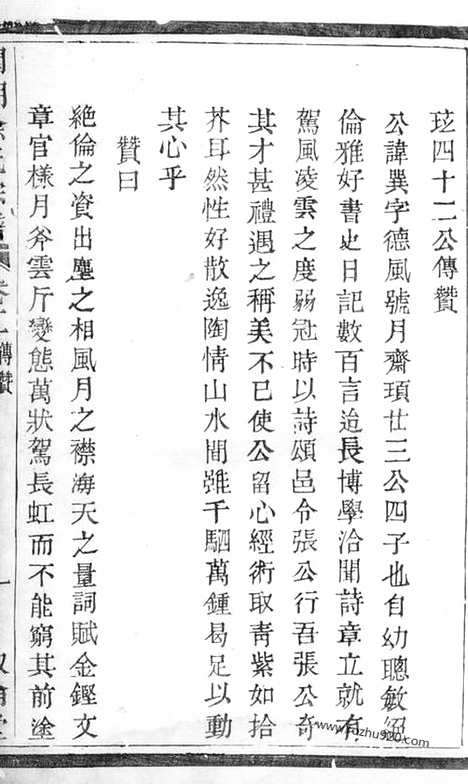 玹四十二公傳贊
公諱㢲字德風號月齋頊廿三公四子也自幼聰敏絕
倫雅好書史日記數百言迨長博學洽聞詩章立就有
駕風凌雲之度弱冠時以詩頌邑令張公行吾張公奇
其才甚禮遇之稱美不已使公留心經術取青紫如拾
芥耳然性好散逸陶情山水間雖千駟萬鍾曷足以動
其心乎
贊曰
絶倫之資出塵之相風月之襟海天之量詞賦金鏗文
章官樣月斧雲斤變態萬狀駕長虹而不能窮其前塗
傳贊
一
www.fozhu920.com